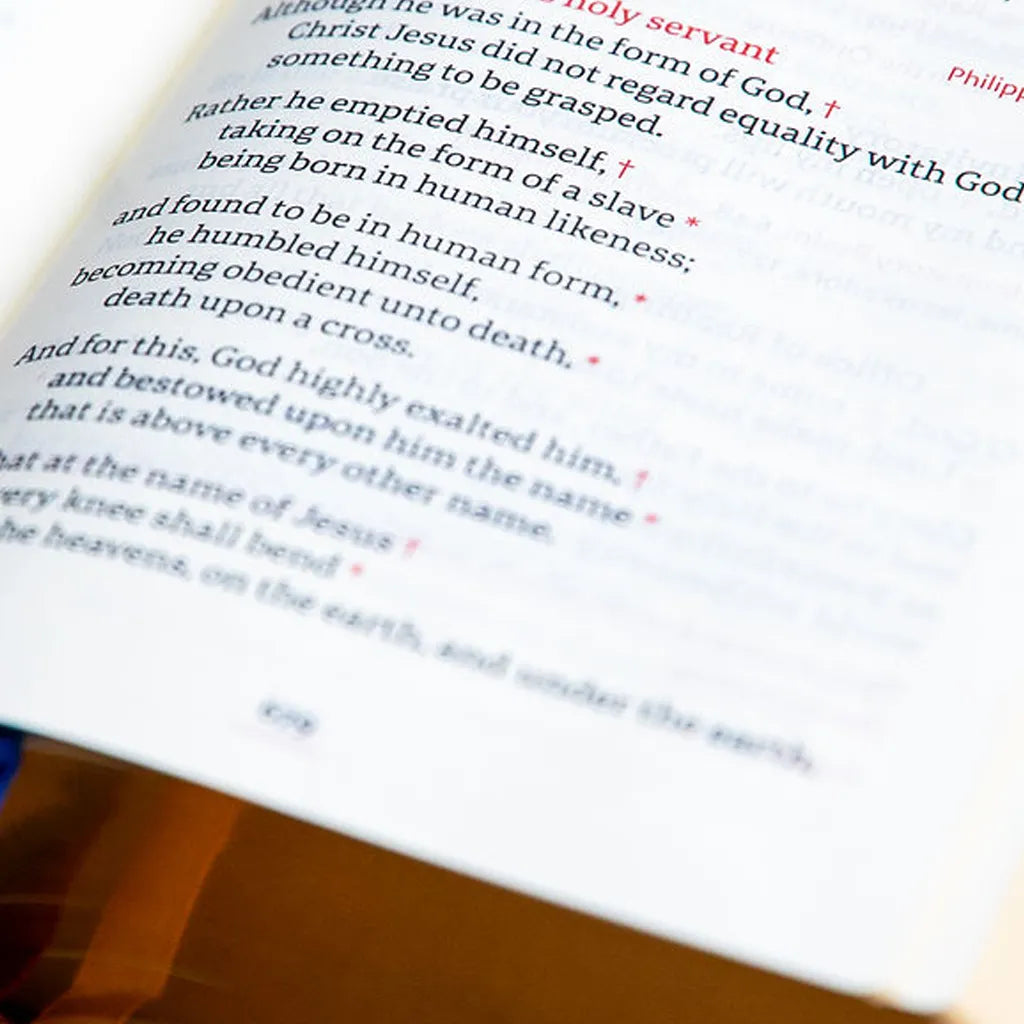 holy servant
Philipp
Although he was in the form of God, †
Christ Jesus did not regard equality with God
something to be grasped.
Rather he emptied himself, †
taking on the form of a slave *
being born in human likeness;
and found to be in human form, *
he humbled himself,
becoming obedient unto death, *
death upon a cross.
And for this, God highly exalted him, †
and bestowed upon him the name *
that is above every other name,
hat at the name of Jesus †
very knee shall bend *
he heavens, on the earth, and under the earth,